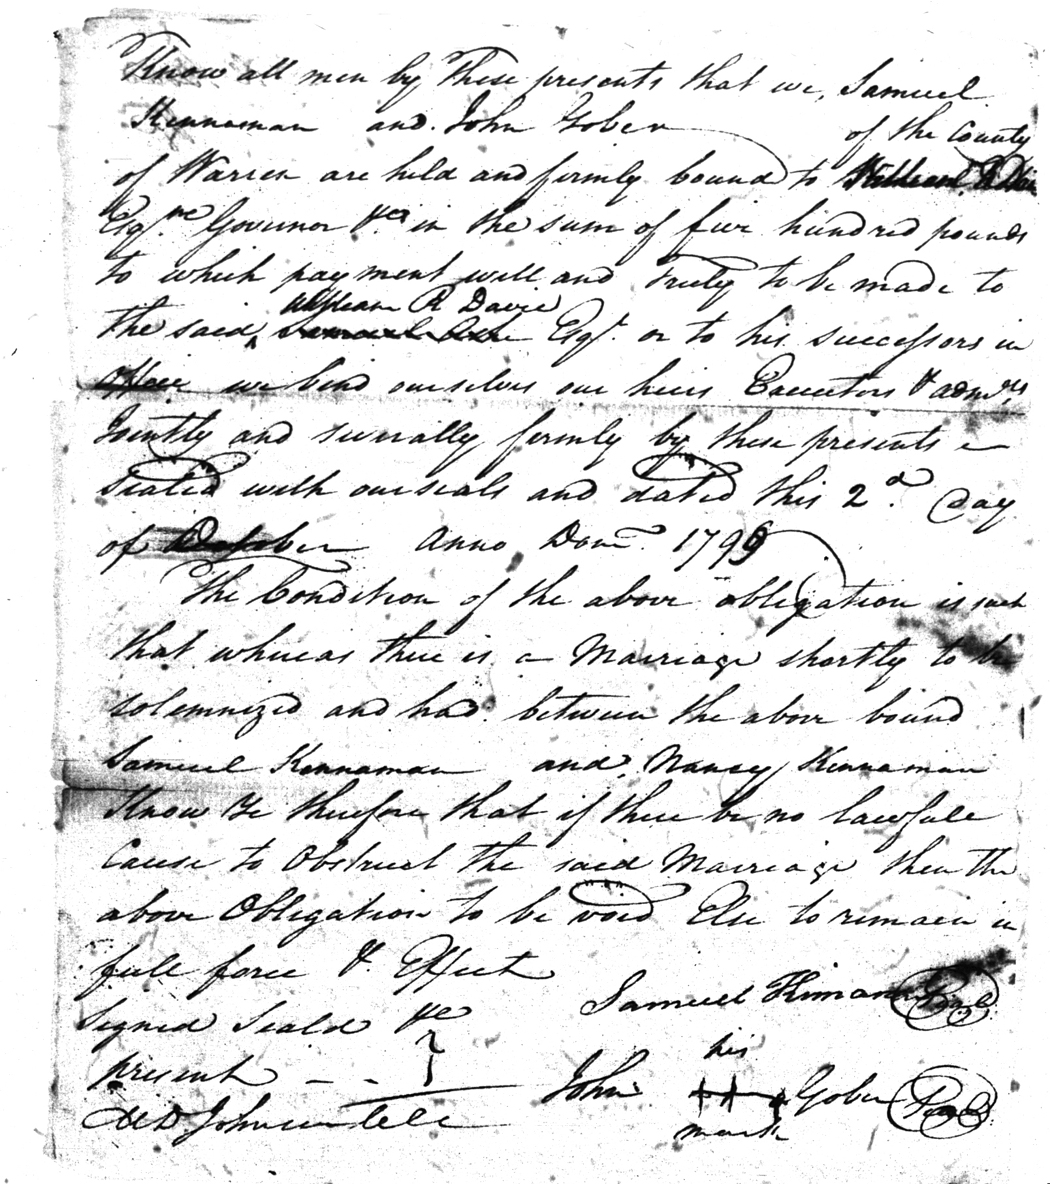 Know all men by These presents that we, Samuel
Kennaman and John Gober of the County
of Warren are held and firmly bound to
Esqr. Governor &ca in the sum of five hundred pounds
to which payment well and truly to be made to
William R Davie
the said Esqr. or to his successors in
office we bind ourselves our heirs Executors & admrs
Jointly and severally firmly by these presents
Sealed with our seals and dated this 2d. Day
of Anno Dom. 1799
The Condition of the above obligation is such
that whereas there is a Marriage shortly to be
solemnized and had between the above bound
Samuel Kennaman and Nancy Kinnaman
Know Ye therefore that if there be no lawfull
Cause to Obstruct the said Marriage then the
above Obligation to be void Else to remain in
full force & Effect
Signed Seald &c
present
Samuel Kinaman Seal
his
John Gober Seal
mark